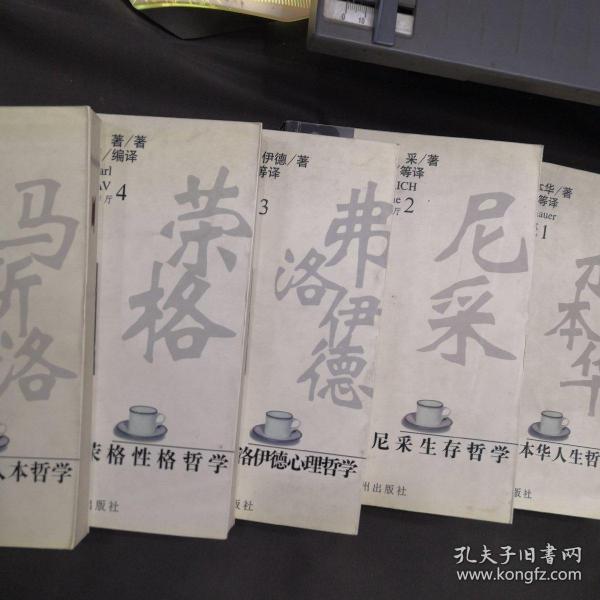 马斯洛
人本哲学
著/著
/编译
4
荣格
荣格性格哲学
出版社
伊德/著
等译
3
弗
洛伊德
洛伊德心理哲学
出版社
采/著
/等译
RICH
2
尼采
尼采生存哲学
州出版社
本华/著
等译
auer
1
本华
本华人生哲
版社
孔夫子旧书网
www.kongfz.com
0
10